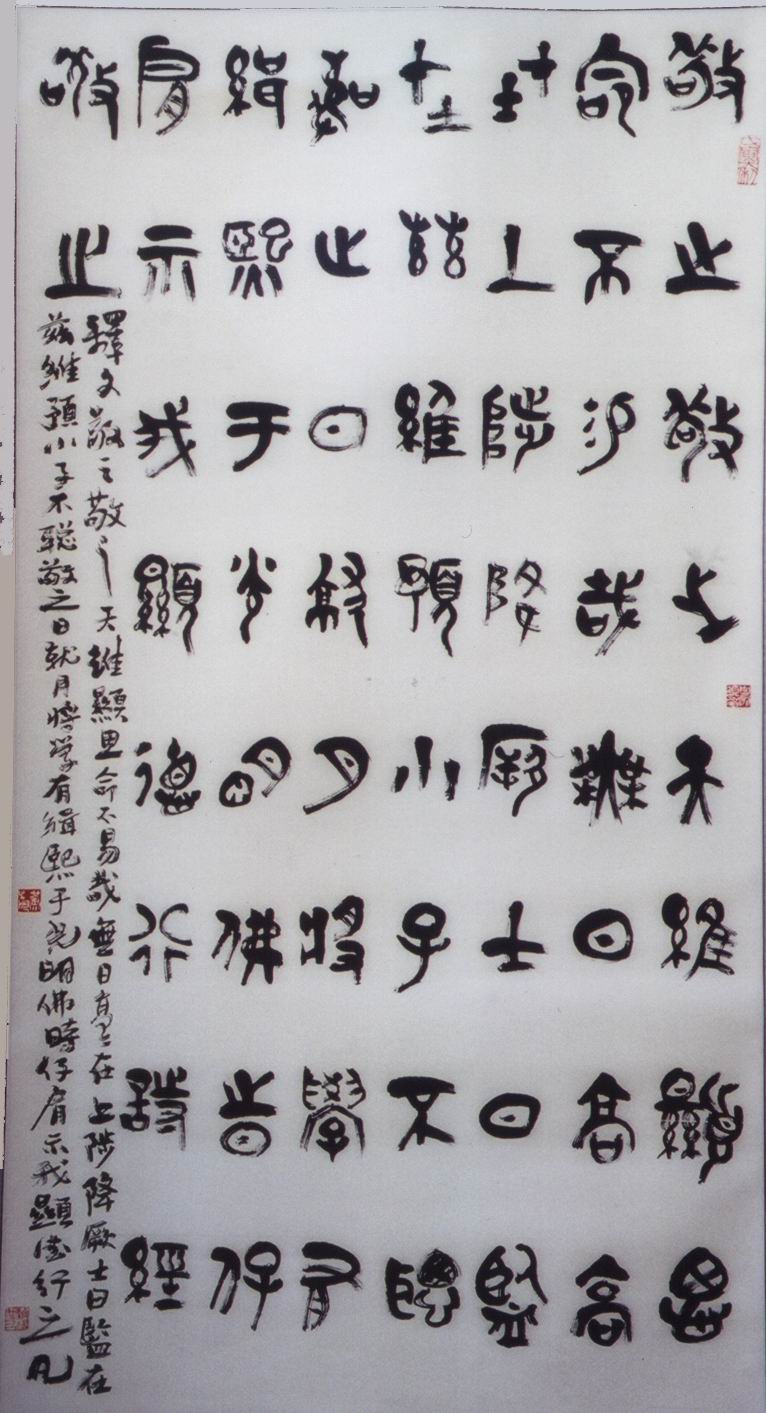 敬之敬之天維顯思
命不易哉無曰高高
在上陟降厥士日監
在茲維預小子不聰
敬之日就月將學有
緝熙于光明佛時仔
肩示我顯德行詩經
敬之
釋文敬之敬之天維顯思命不易哉無曰高高在上陟降厥士日監在
茲維預小子不聪敬之日就月將学有緝熙于光明佛時仔肩示我顯德行之